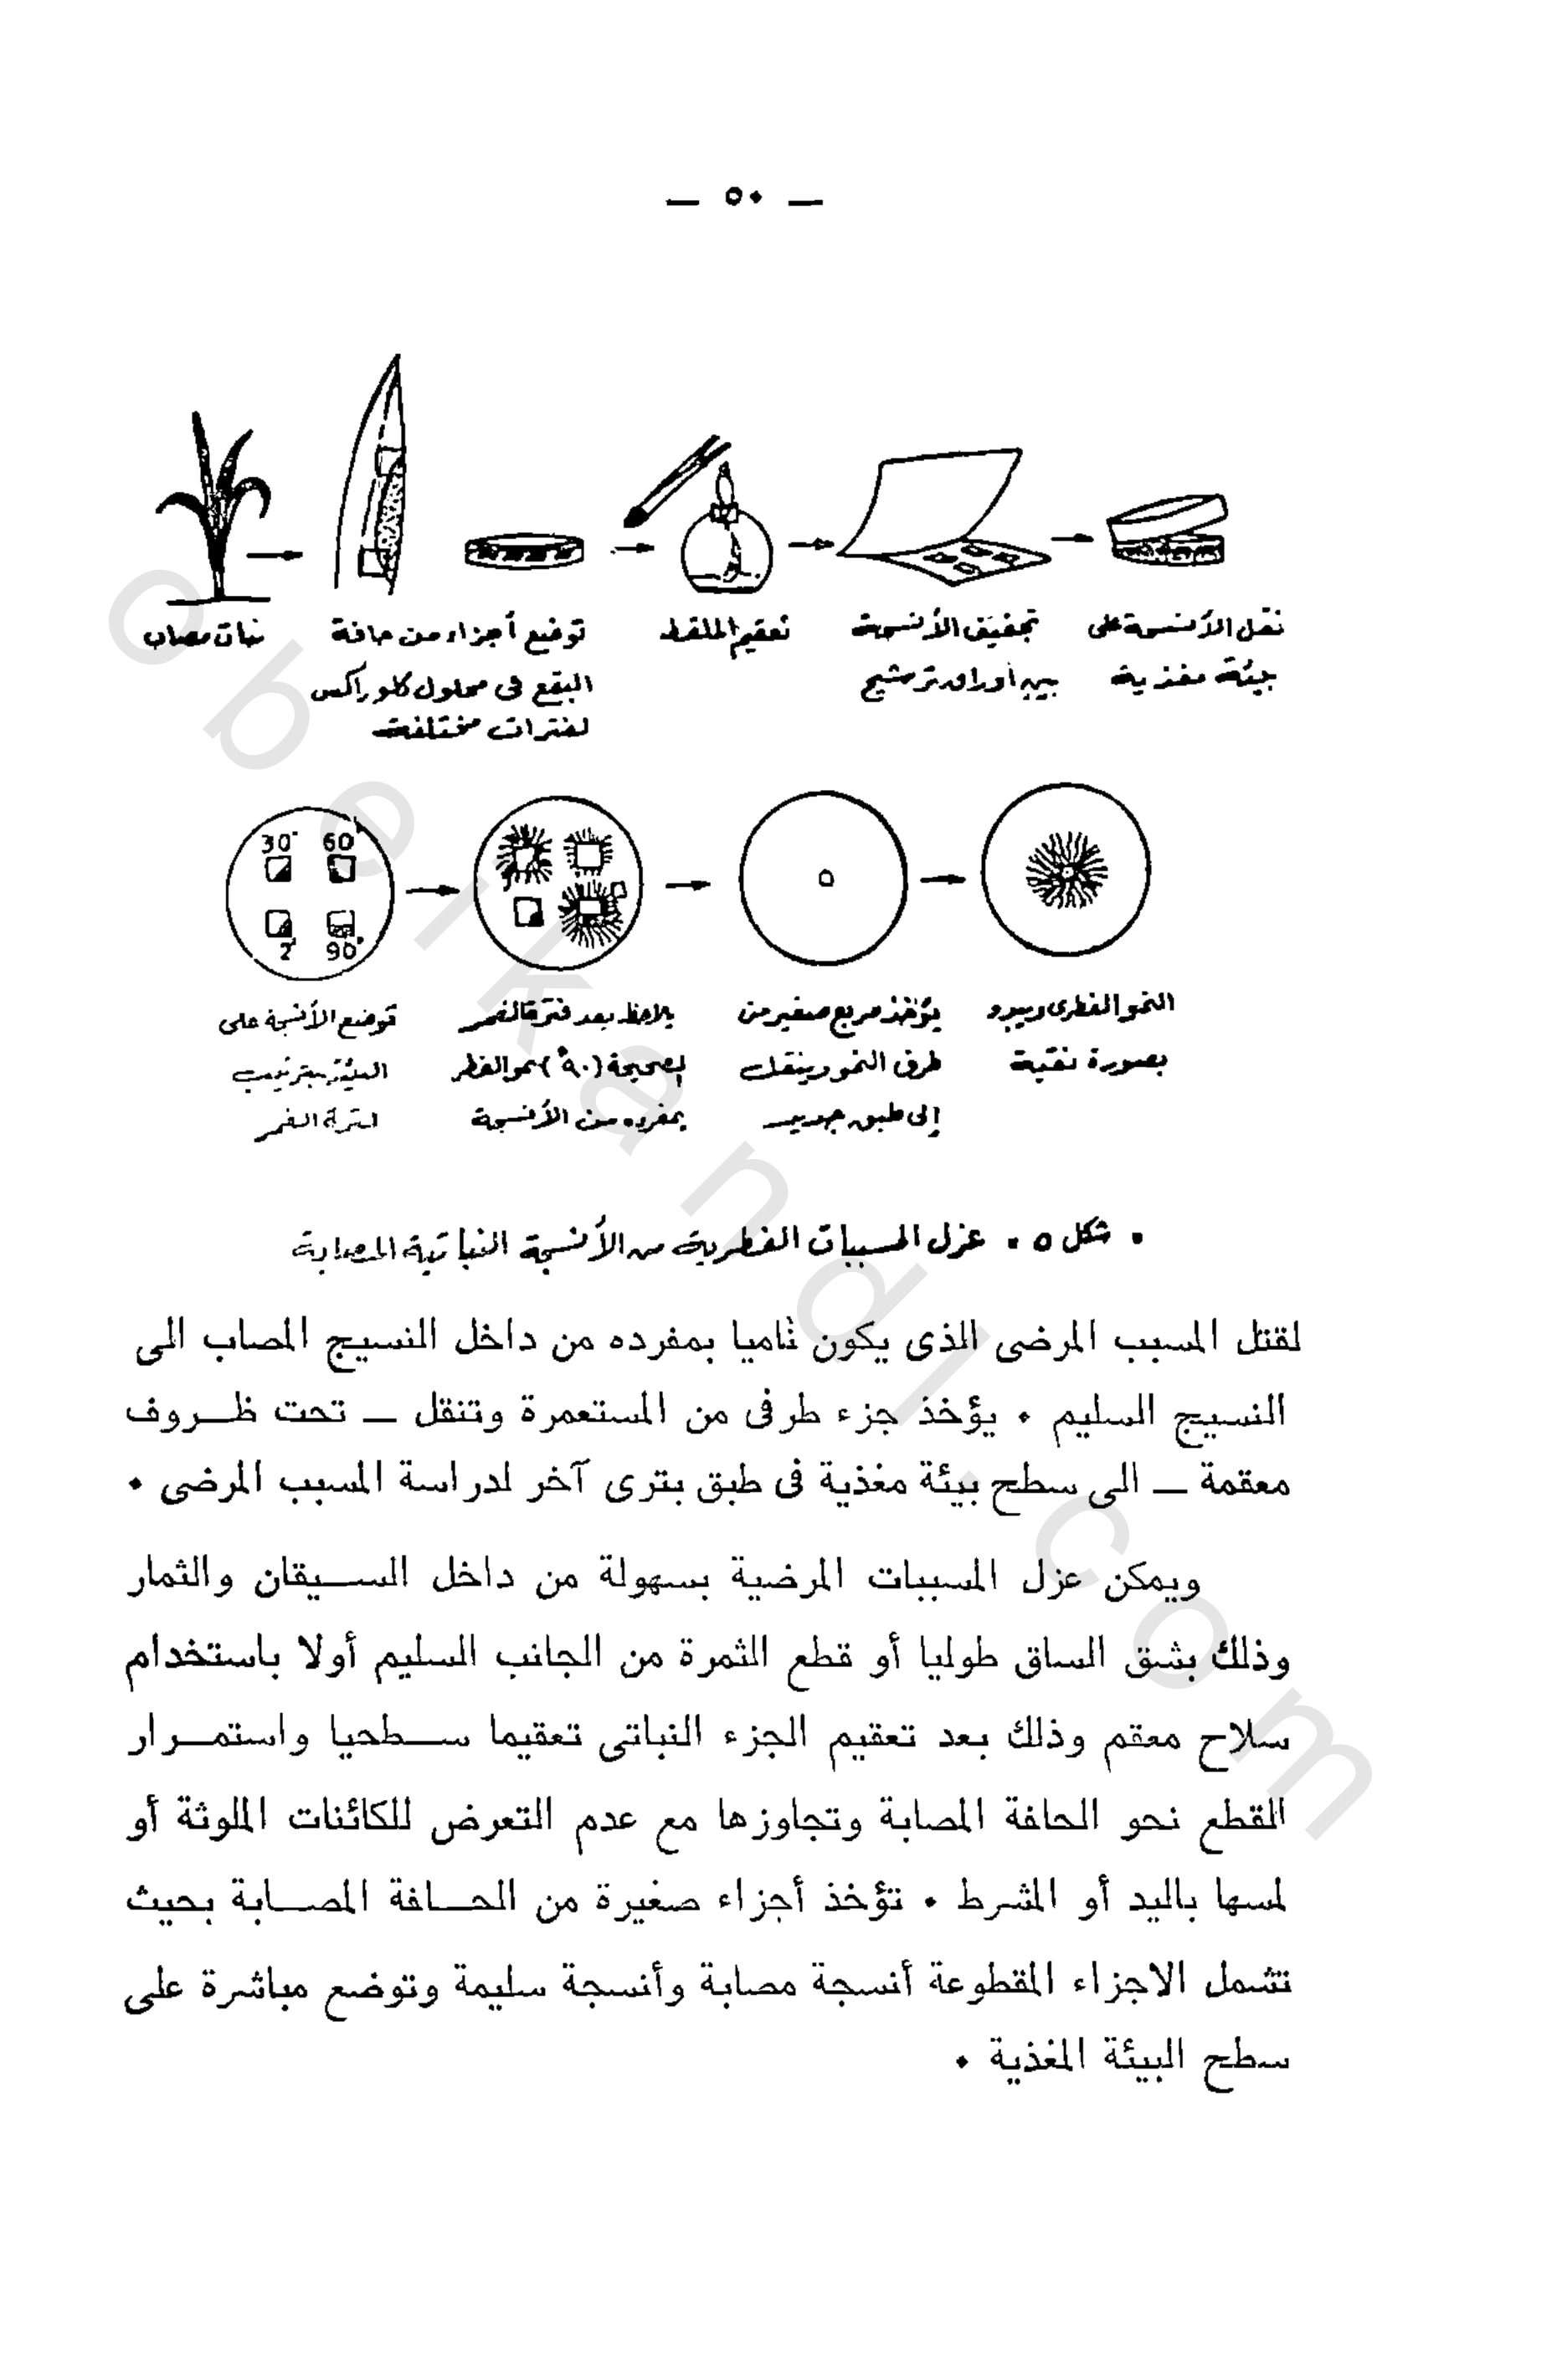 — ٥٠ —
نبات مصاب
توضع أجزاء من حافة
البقع فى محلول كلوراكس
لفترات مختلفة
تعقيم الملقط
تجفيف الأنسجة
بين أوراق ترشيح
نقل الأنسجة على
بيئة مغذية
30 60
2 90
توضع الأنسجة على
البيئة بترتيب
لفترة الغمر
يلاحظ بعد فترة الغمر
الصحيحة (٩٠) نمو الفطر
بمفرده من الأنسجة
يؤخذ مربع صغير من
طرف النمو وينقل
إلى طبق جديد
النمو الفطرى ويبدو
بصورة نقية
٠ شكل ٥ ٠ عزل المسببات الفطرية من الأنسجة النباتية المصابة
لقتل المسبب المرضى الذى يكون ناميا بمفرده من داخل النسيج المصاب الى
النسيج السليم ٠ يؤخذ جزء طرفى من المستعمرة وتنقل — تحت ظروف
معقمة — الى سطح بيئة مغذية فى طبق بترى آخر لدراسة المسبب المرضى ٠
ويمكن عزل المسببات المرضية بسهولة من داخل السيقان والثمار
وذلك بشق الساق طوليا أو قطع الثمرة من الجانب السليم أولا باستخدام
سلاح معقم وذلك بعد تعقيم الجزء النباتى تعقيما سطحيا واستمرار
القطع نحو الحافة المصابة وتجاوزها مع عدم التعرض للكائنات الملوثة أو
لمسها باليد أو المشرط ٠ تؤخذ أجزاء صغيرة من الحافة المصابة بحيث
تشمل الاجزاء المقطوعة أنسجة مصابة وأنسجة سليمة وتوضع مباشرة على
سطح البيئة المغذية ٠
obeikandl.com